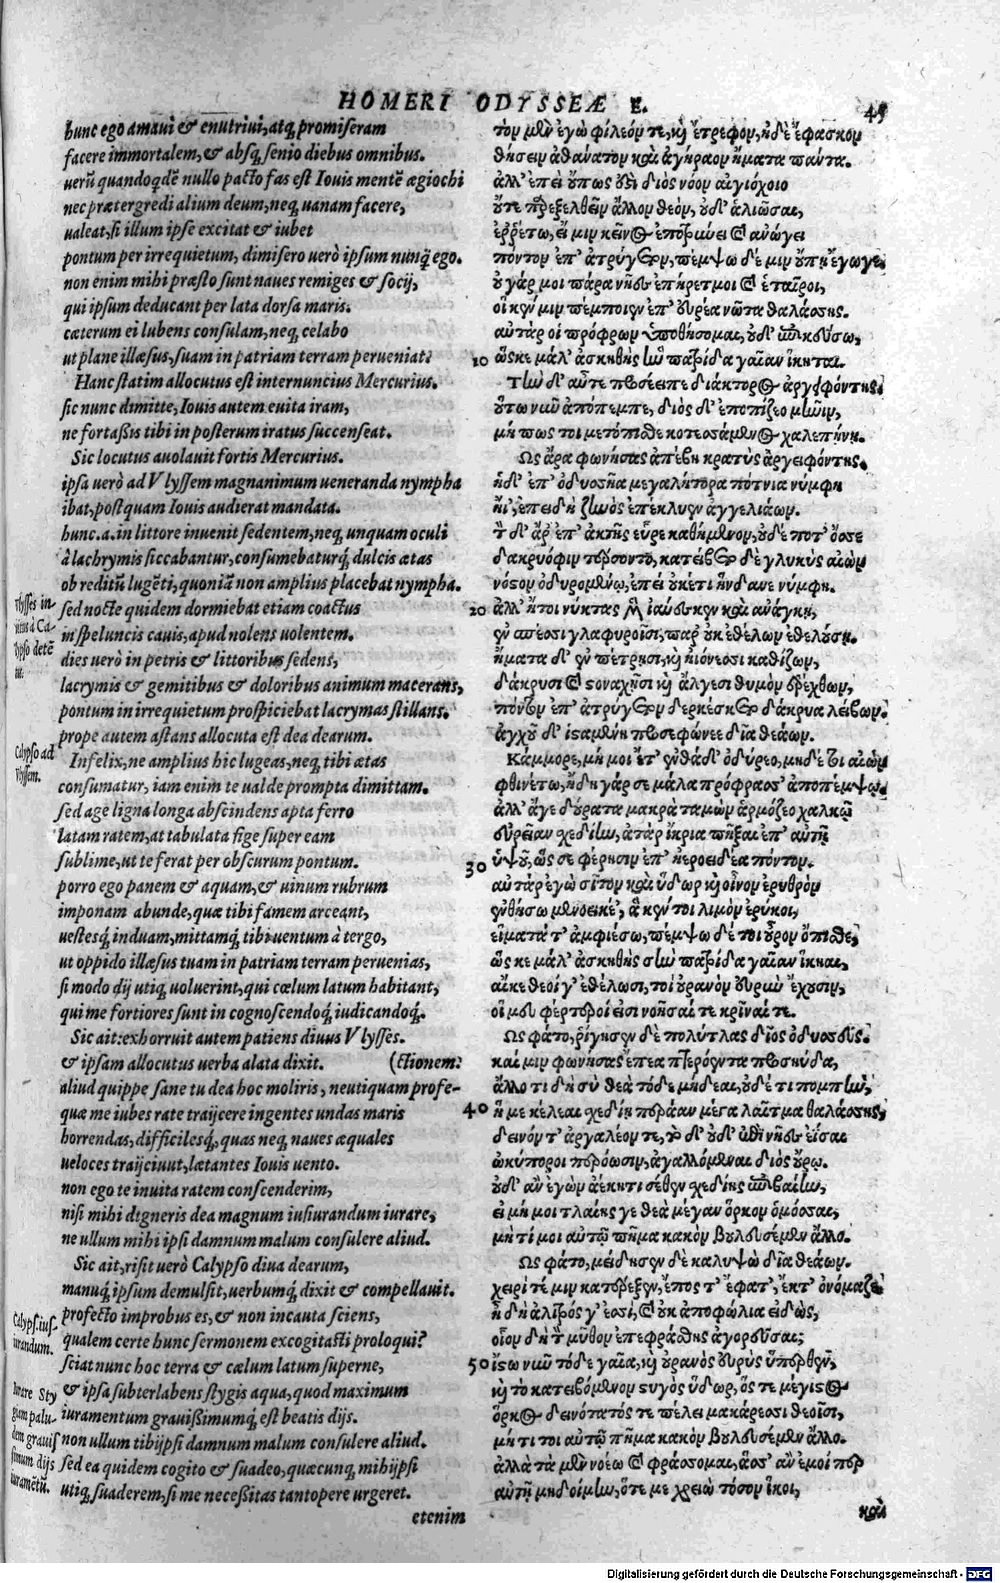 HOMERI ODYSSEÆ E. 45
hunc ego amaui & enutriui, atq; promiseram
facere immortalem, & absq; senio diebus omnibus.
uerũ quandoqdẽ nullo pacto fas est Iouis mentẽ ægiochi
nec prætergredi alium deum, neq; uanam facere,
ualeat, si illum ipse excitat & iubet
pontum per irrequietum, dimisero uerò ipsum nunq̃ ego.
non enim mihi præsto sunt naues remiges & socij,
qui ipsum deducant per lata dorsa maris.
cæterum ei lubens consulam, neq; celabo
ut plane illæsus, suam in patriam terram perueniat.
Hanc statim allocutus est internuncius Mercurius.
sic nunc dimitte, Iouis autem euita iram,
ne fortaßis tibi in posterum iratus succenseat.
Sic locutus auolauit fortis Mercurius.
ipsa uerò ad Vlyssem magnanimum ueneranda nympha
ibat, postquam Iouis audierat mandata.
hunc .a. in littore inuenit sedentem, neq; unquam oculi
à lachrymis siccabantur, consumebaturq; dulcis ætas
ob reditũ lugẽti, quoniã non amplius placebat nympha.
sed nocte quidem dormiebat etiam coactus
in speluncis cauis, apud nolens uolentem.
dies uerò in petris & littoribus sedens,
lacrymis & gemitibus & doloribus animum macerans,
pontum in irrequietum prospiciebat lacrymas stillans.
prope autem astans allocuta est dea dearum.
Infelix, ne amplius hic lugeas, neq; tibi ætas
consumatur, iam enim te ualde prompta dimittam.
sed age ligna longa abscindens apta ferro
latam ratem, at tabulata fige super eam
sublime, ut te ferat per obscurum pontum.
porro ego panem & aquam, & uinum rubrum
imponam abunde, quæ tibi famem arceant,
uestesq; induam, mittamq; tibi uentum à tergo,
ut oppido illæsus tuam in patriam terram peruenias,
si modo dij utiq; uoluerint, qui cælum latum habitant,
qui me fortiores sunt in cognoscendoq; iudicandoq;.
Sic ait: exhorruit autem patiens diuus Vlysses.
& ipsam allocutus uerba alata dixit. (ctionem:
aliud quippe sane tu dea hoc moliris, neutiquam profe-
quæ me iubes rate traijcere ingentes undas maris
horrendas, difficilesq;, quas neq; naues æquales
ueloces traijciuut, lætantes Iouis uento.
non ego te inuita ratem conscenderim,
nisi mihi digneris dea magnum iusiurandum iurare,
ne ullum mihi ipsi damnum malum consulere aliud.
Sic ait, risit uerò Calypso diua dearum,
manuq; ipsum demulsit, uerbumq; dixit & compellauit.
profecto improbus es, & non incauta sciens,
qualem certe hunc sermonem excogitasti proloqui?
sciat nunc hoc terra & cælum latum superne,
& ipsa subterlabens stygis aqua, quod maximum
iuramentum grauißimumq; est beatis dijs.
non ullum tibijpsi damnum malum consulere aliud.
sed ea quidem cogito & suadeo, quæcunq; mihijpsi
utiq; suaderem, si me neceßitas tantopere urgeret.
etenim
Vlysses in-
uitus à Ca-
lypso detẽ
tu.
Calypso ad
Vlyssem.
Calyps. ius-
iurandum.
Iurare Sty
giam palu-
dem grauis
simum dijs
iuramẽtũ.
τὸν μὲν ἐγὼ φίλεόν τε, καὶ ἔτρεφον, ἠδὲ ἔφασκον
θήσειν ἀθάνατον καὶ ἀγήραον ἤματα πάντα.
ἀλλ' ἐπεὶ οὔπως ἐστὶ διὸς νόον αἰγιόχοιο
οὔτε παρεξελθεῖν ἄλλον θεὸν, οὐδ' ἁλιῶσαι,
ἐρρέτω, εἴ μιν κεῖνος ἐποτρύνει καὶ ἀνώγει
πόντον ἐπ' ἀτρύγετον, πέμψω δέ μιν οὔπῃ ἔγωγε,
οὐ γάρ μοι πάρα νῆες ἐπήρετμοι καὶ ἑταῖροι,
οἵ κέν μιν πέμποιεν ἐπ' εὐρέα νῶτα θαλάσσης.
αὐτάρ οἱ πρόφρων ὑποθήσομαι, οὐδ' ἐπικεύσω,
10 ὥς κε μάλ' ἀσκηθὴς ἣν πατρίδα γαῖαν ἵκηται.
Τὴν δ' αὖτε προσέειπε διάκτορος ἀργειφόντης,
οὕτω νῦν ἀπόπεμπε, διὸς δ' ἐποπίζεο μῆνιν,
μή πως τοι μετόπισθε κοτεσσάμενος χαλεπήνῃ.
Ως ἄρα φωνήσας ἀπέβη κρατὺς ἀργειφόντης,
ἡ δ' ἐπ' ὀδυσσῆα μεγαλήτορα πότνια νύμφη
ἤι', ἐπειδὴ ζηνὸς ἐπέκλυεν ἀγγελιάων.
τὸν δ' ἄρ' ἐπ' ἀκτῆς εὗρε καθήμενον, οὐδέ ποτ' ὄσσε
δακρυόφιν τέρσοντο, κατείβετο δὲ γλυκὺς αἰὼν
νόστον ὀδυρομένῳ, ἐπεὶ οὐκέτι ἥνδανε νύμφη.
20 ἀλλ' ἤτοι νύκτας μὲν ἰαύεσκεν καὶ ἀνάγκῃ,
ἐν σπέσσι γλαφυροῖσι, παρ' οὐκ ἐθέλων ἐθελούσῃ.
ἤματα δ' ἐν πέτρῃσι, καὶ ἠιόνεσσι καθίζων,
δάκρυσι καὶ στοναχῇσι καὶ ἄλγεσι θυμὸν ἐρέχθων,
πόντον ἐπ' ἀτρύγετον δερκέσκετο δάκρυα λείβων.
ἀγχοῦ δ' ἱσταμένη προσεφώνεε δῖα θεάων.
Κάμμορε, μή μοι ἔτ' ἐνθάδ' ὀδύρεο, μηδέ τοι αἰὼν
φθινέτω, ἤδη γάρ σε μάλα πρόφρασσ' ἀποπέμψω.
ἀλλ' ἄγε δούρατα μακρὰ ταμὼν ἁρμόζεο χαλκῷ
εὐρεῖαν σχεδίην, ἀτὰρ ἴκρια πῆξαι ἐπ' αὐτῇ
30 ὑψοῦ, ὥς σε φέρῃσιν ἐπ' ἠεροειδέα πόντον.
αὐτὰρ ἐγὼ σῖτον καὶ ὕδωρ καὶ οἶνον ἐρυθρὸν
ἐνθήσω μενοεικέ', ἅ κέν τοι λιμὸν ἐρύκοι,
εἵματά τ' ἀμφιέσω, πέμψω δέ τοι οὖρον ὄπισθε,
ὥς κε μάλ' ἀσκηθὴς σὴν πατρίδα γαῖαν ἵκηαι,
αἴ κε θεοί γ' ἐθέλωσι, τοὶ οὐρανὸν εὐρὺν ἔχουσιν,
οἵ μευ φέρτεροί εἰσι νοῆσαί τε κρῖναί τε.
Ως φάτο, ῥίγησεν δὲ πολύτλας δῖος ὀδυσσεύς.
καί μιν φωνήσας ἔπεα πτερόεντα προσηύδα,
ἄλλο τι δὴ σὺ θεὰ τόδε μήδεαι, οὐδέ τι πομπὴν,
40 ἥ με κέλεαι σχεδίῃ περάαν μέγα λαῖτμα θαλάσσης,
δεινόν τ' ἀργαλέον τε, τὸ δ' οὐδ' ἐπὶ νῆες ἐῖσαι
ὠκύποροι περόωσιν, ἀγαλλόμεναι διὸς οὔρῳ.
οὐδ' ἂν ἐγὼν ἀέκητι σέθεν σχεδίης ἐπιβαίην,
εἰ μή μοι τλαίης γε θεὰ μέγαν ὅρκον ὀμόσσαι,
μή τί μοι αὐτῷ πῆμα κακὸν βουλευσέμεν ἄλλο.
Ως φάτο, μείδησεν δὲ καλυψὼ δῖα θεάων.
χειρί τέ μιν κατέρεξεν, ἔπος τ' ἔφατ', ἔκ τ' ὀνόμαζε
ἦ δὴ ἀλιτρός γ' ἐσσὶ, καὶ οὐκ ἀποφώλια εἰδὼς,
οἷον δὴ τὸν μῦθον ἐπεφράσθης ἀγορεῦσαι;
50 ἴστω νῦν τόδε γαῖα, καὶ οὐρανὸς εὐρὺς ὕπερθεν,
καὶ τὸ κατειβόμενον στυγὸς ὕδωρ, ὅς τε μέγιστος
ὅρκος δεινότατός τε πέλει μακάρεσσι θεοῖσι,
μή τί τοι αὐτῷ πῆμα κακὸν βουλευσέμεν ἄλλο.
ἀλλὰ τὰ μὲν νοέω καὶ φράσσομαι, ἅσσ' ἂν ἐμοί περ
αὐτῇ μηδοίμην, ὅτε με χρειὼ τόσον ἵκοι,
καὶ
Digitalisierung gefördert durch die Deutsche Forschungsgemeinschaft - DFG